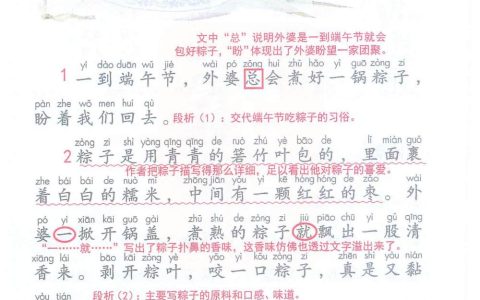 文中“总”说明外婆是一到端午节就会
包好粽子，“盼”体现出了外婆盼望一家团聚。
yí dào duān wǔ jié wài pó zǒng huì zhǔ hǎo yì guō zòng zi
1 一到端午节，外婆总会煮好一锅粽子，
pàn zhe wǒ men huí qù
盼着我们回去。 段析（1）：交代端午节吃粽子的习俗。
zòng zi shì yòng qīng qīng de ruò zhú yè bāo de lǐ miàn guǒ
2 粽子是用青青的箬竹叶包的，里面裹
作者把粽子描写得那么详细，足以看出他对粽子的喜爱。
zhe bái bái de nuò mǐ zhōng jiān yǒu yì kē hóng hóng de zǎo wài
着白白的糯米，中间有一颗红红的枣。外
pó yì xiān kāi guō gài zhǔ shú de zòng zi jiù piāo chū yì gǔ qīng
婆一掀开锅盖，煮熟的粽子就飘出一股清
“一………就……”写出了粽子扑鼻的香味，这香味仿佛也透过文字溢出来了。
xiāng lái bō kāi zòng yè yǎo yì kǒu zòng zi zhēn shì yòu
香来。剥开粽叶，咬一口粽子，真是又黏
yòu tián
段析（2）：主要写粽子的原料和口感、味道。